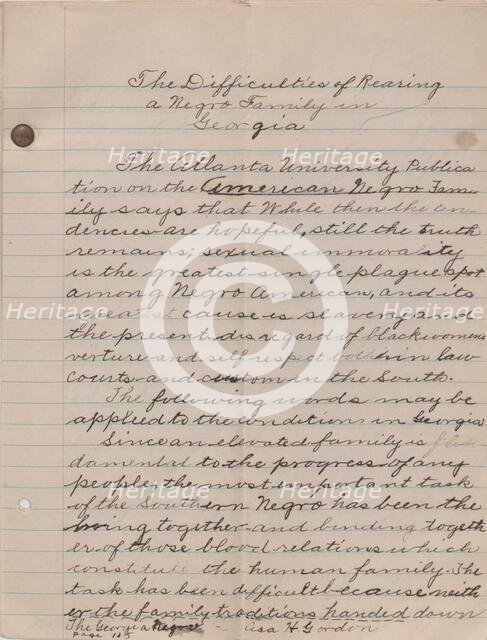 The Difficulties of Rearing
a Negro Family in
Georgia
The Atlanta University Publica
tion on the American Negro Fam-
ily says that While then the ten
dencies are hopeful, still the truth
remains; sexual immorality
is the greatest single plague spot
among Negro American, and its
greatest cause is slavery and
the present disregard of black womens
verture and self respect both in law
courts and custom in the South.
The following words may be
applied to the conditions in Georgia
Since an elevated family is fun
damental to the progress of any
people, the most important task
of the Southern Negro has been the
bring together and binding togeth
er of those blood relations which
constitute the human family. The
task has been difficult because neith
er the family traditions handed down
The Georgia Negro - Asa H Gordon
page 125
Heritage
Heritage
Heritage
Heritage
Heritage
Heritage
Heritage
Heritage